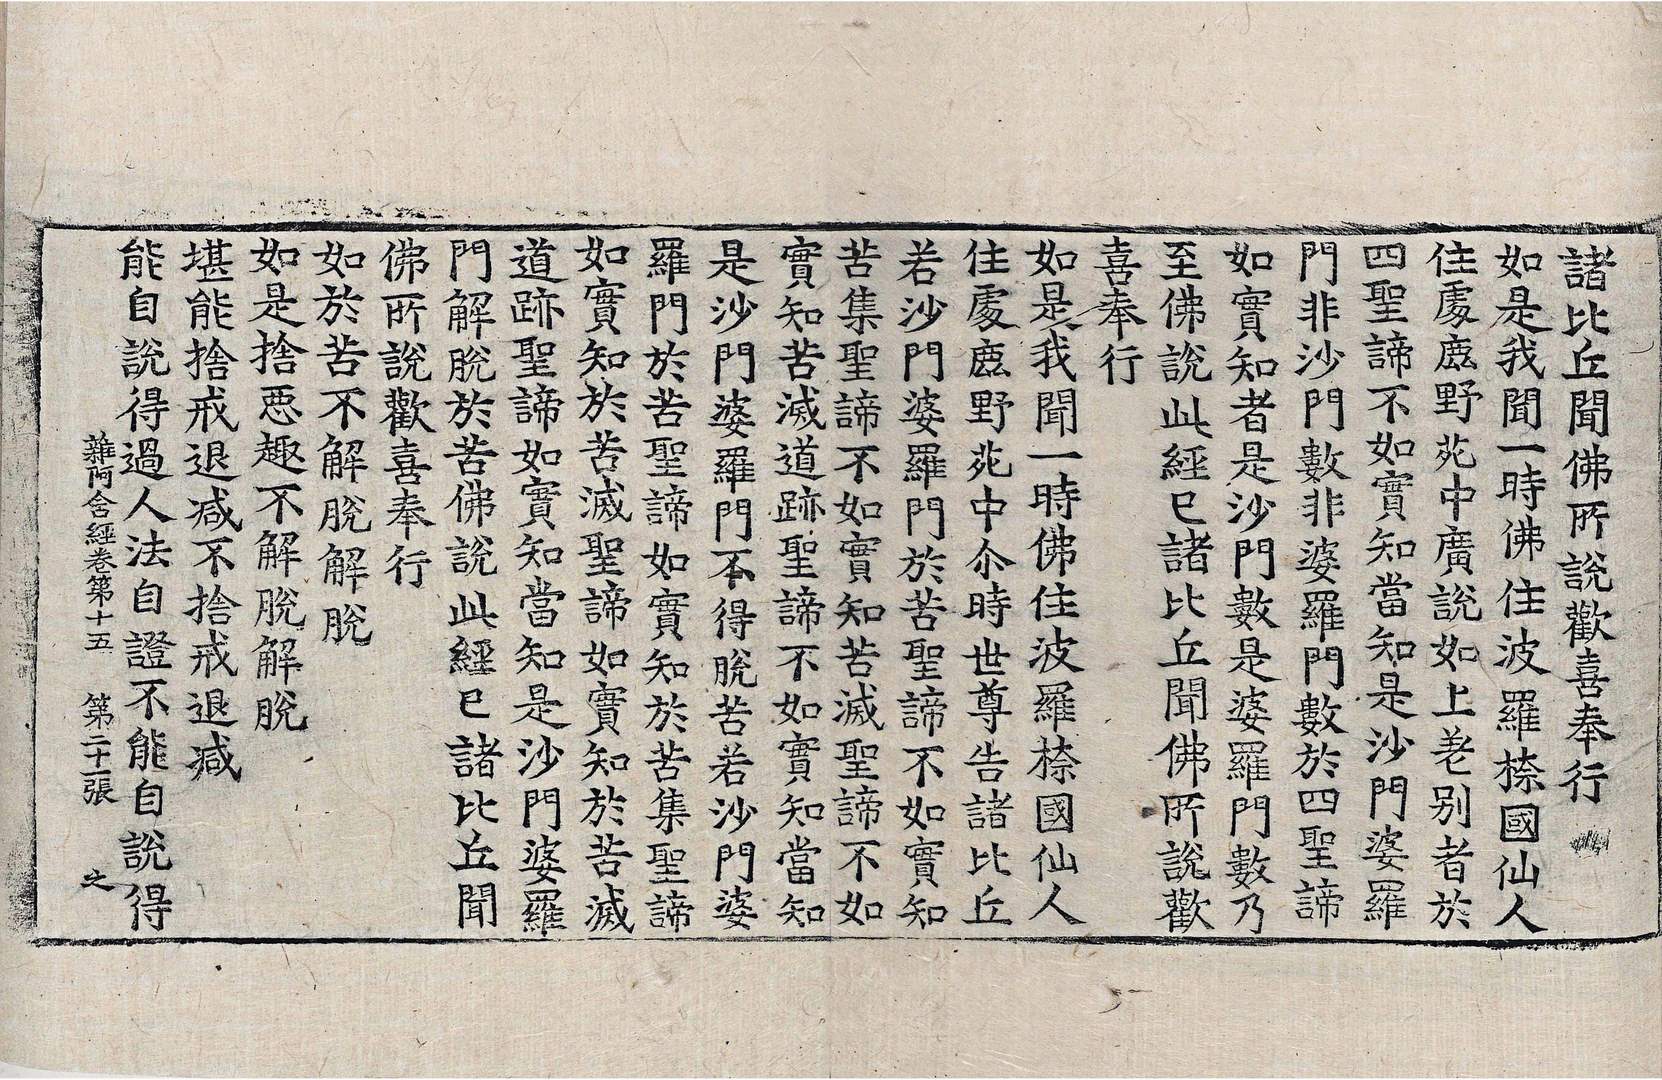 諸比丘聞佛所說歡喜奉行
如是我聞一時佛住波羅㮈國仙人
住處鹿野苑中廣說如上差別者於
四聖諦不如實知當知是沙門婆羅
門非沙門數非婆羅門數於四聖諦
如實知者是沙門數是婆羅門數乃
至佛說此經已諸比丘聞佛所說歡
喜奉行
如是我聞一時佛住波羅㮈國仙人
住處鹿野苑中尒時世尊告諸比丘
若沙門婆羅門於苦聖諦不如實知
苦集聖諦不如實知苦滅聖諦不如
實知苦滅道跡聖諦不如實知當知
是沙門婆羅門不得脫苦若沙門婆
羅門於苦聖諦如實知於苦集聖諦
如實知於苦滅聖諦如實知於苦滅
道跡聖諦如實知當知是沙門婆羅
門解脫於苦佛說此經已諸比丘聞
佛所說歡喜奉行
如於苦不解脫解脫
如是捨惡趣不解脫解脫
堪能捨戒退減不捨戒退減
能自說得過人法自證不能自說得
雜阿含經卷第十五 第二十二張 之